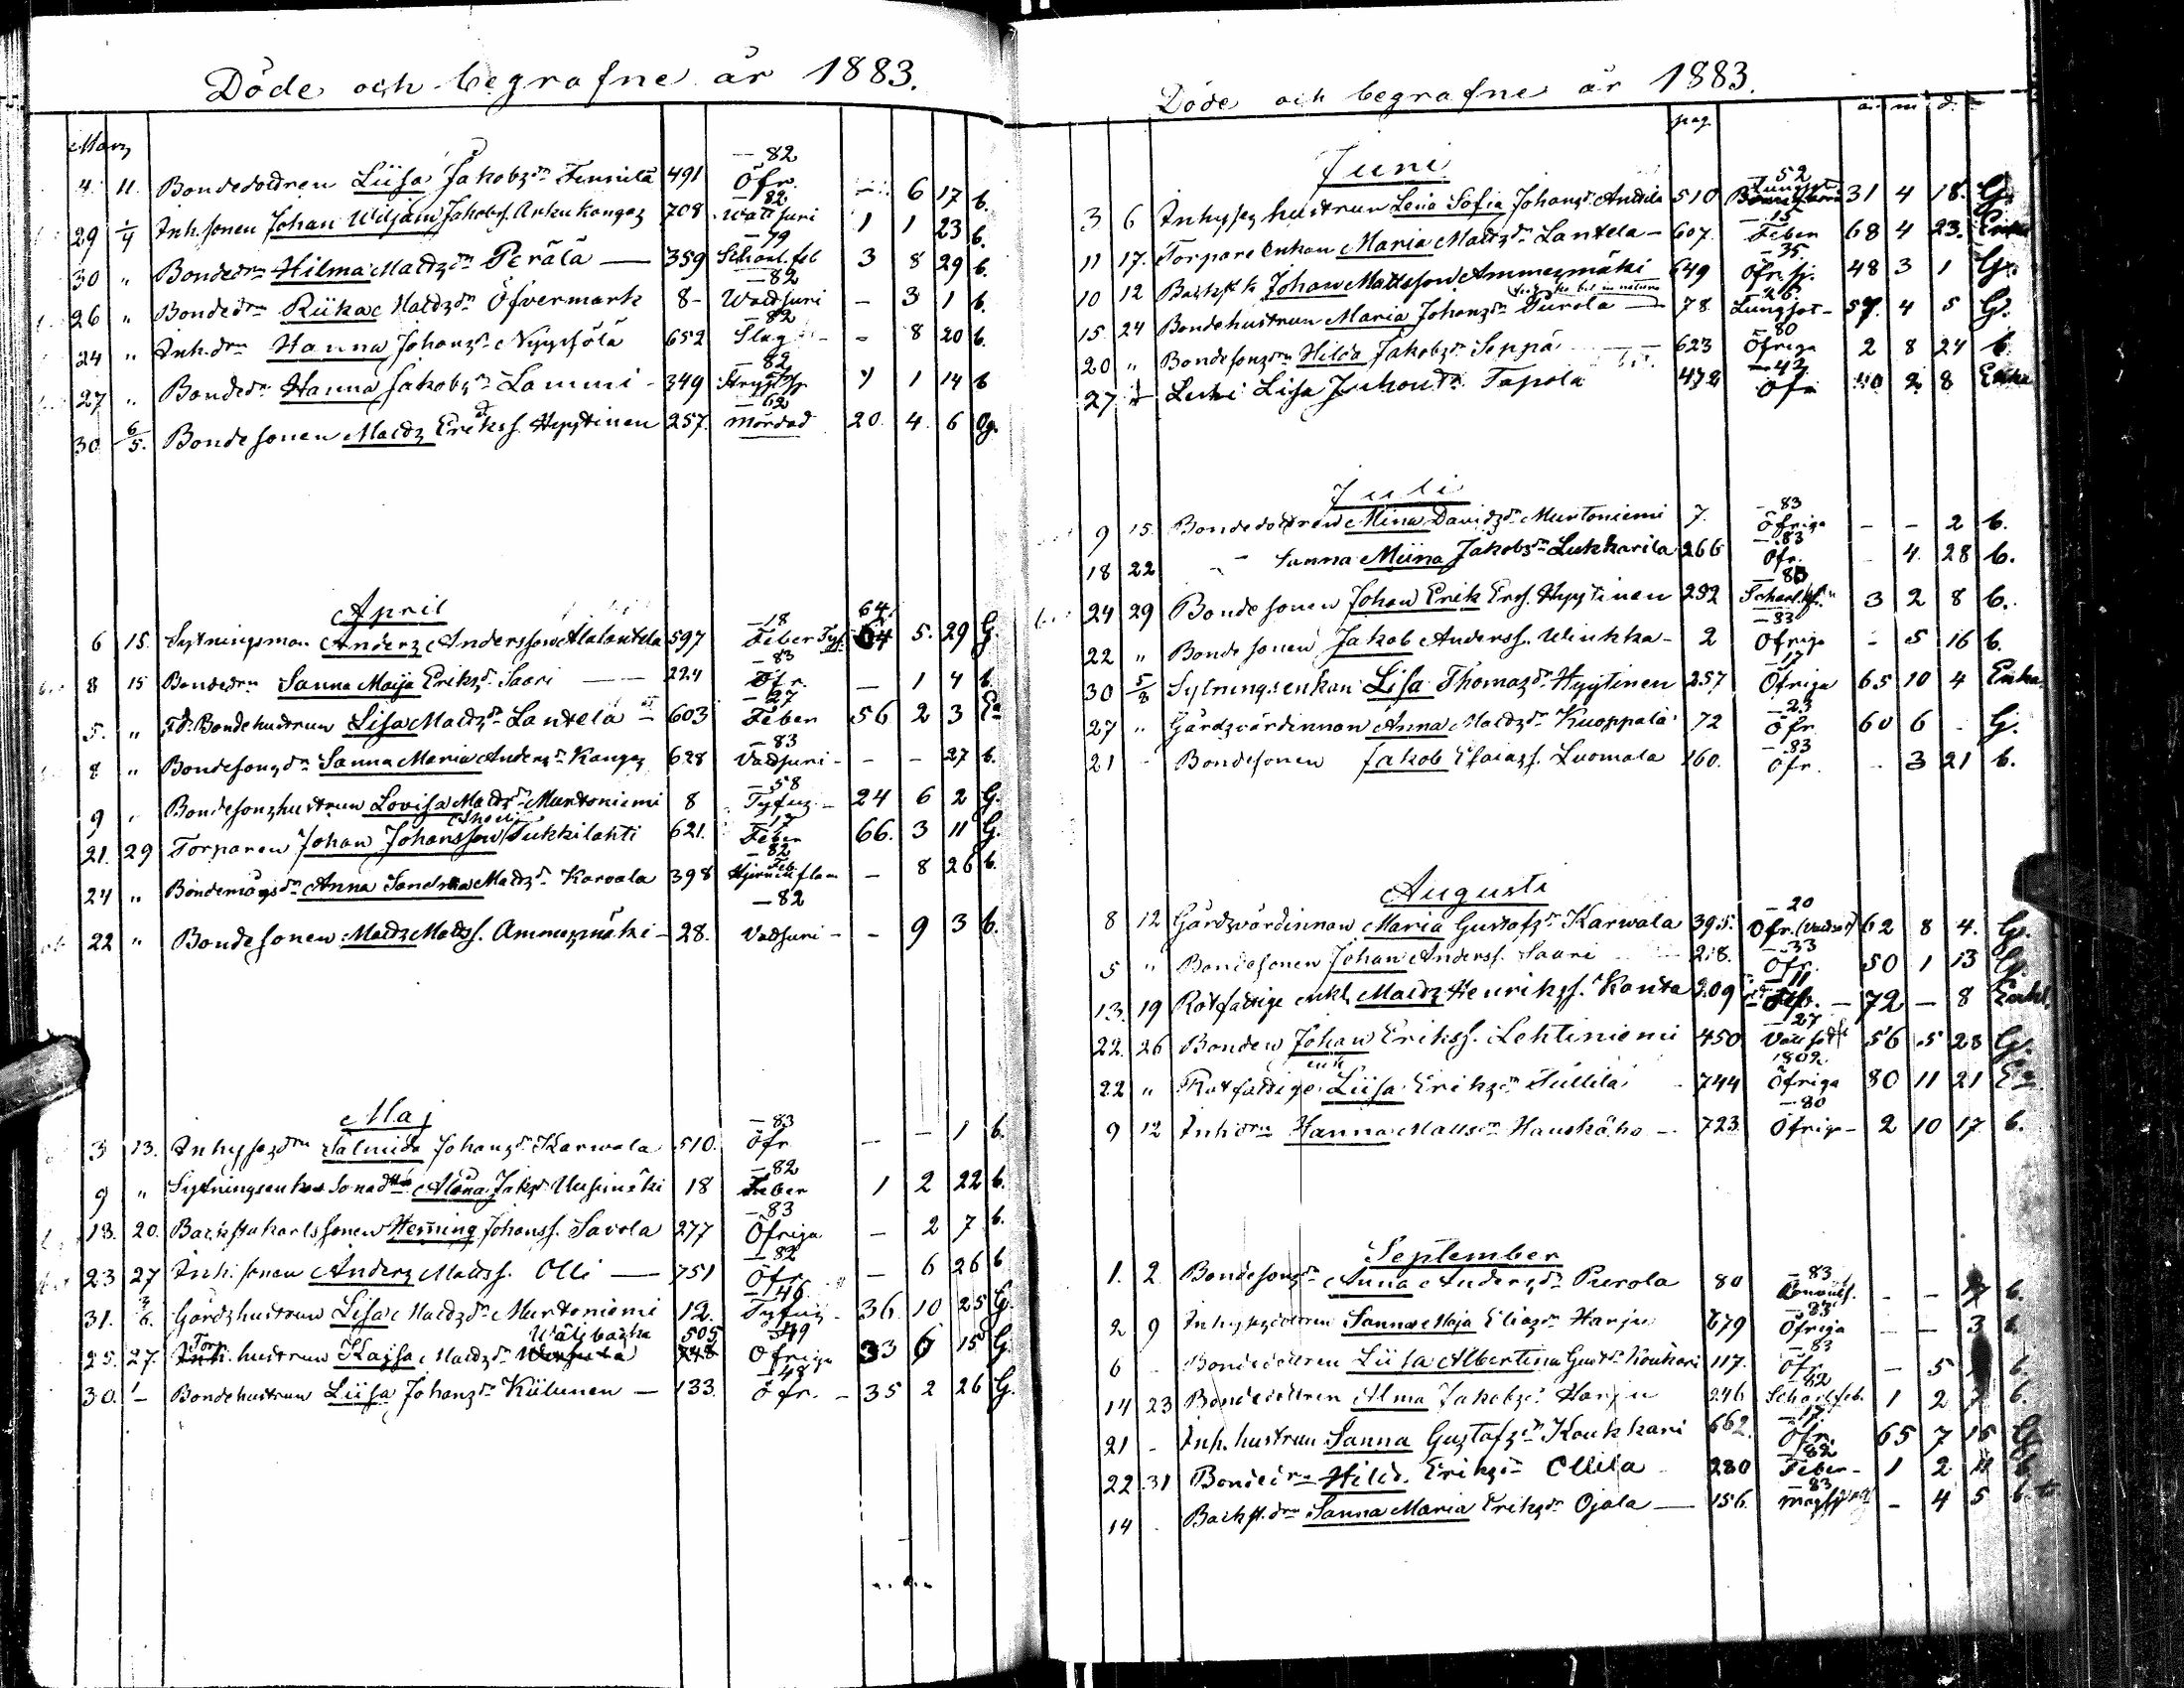 Döde och begrafne år 1883.
Mars
4. 11. Bondedottren Liisa Jakobsdr 491 -82 Öfr. - 6 17 b.
29 1/4 Inh. sonen Johan Wiljam Jakobss. Kangas 708 -82 Wattsuri 1 1 23 b.
30 " Bondedrn Hilma Mattsdr Perälä — 359 -79 Scharl.feb 3 8 29 b.
26 " Bondedrn Riika Mattsdr Öfvermark 8- -82 Wattsuri - 3 1 b.
24 " Inh.drn Hanna Johansdr 652 -82 Slag - - 8 20 b.
27 " Bondedr Hanna Jakobsdr Lammi - 349 -82 1 14 b
30 6/5. Bondesonen Matts Erikss. Hyytinen 257. -62 mördad 20. 4. 6 Og.
April
6 15. Sytningsman Anders Andersson Alalantela 597 -18 Feber Tyf. 64 5. 29 G.
8 15 Bondedrn Sanna Maija Eriksdr Saari — 224 -83 Öfr. — 1 4 b.
5. " Fd. Bondehustrun Lisa Mattsdr Lantela - 603 -27 Feber 56 2 3 Ea
8 " Bondesonsdr Sanna Maria Andersdr Kangas 628 -83 Vattsuri - - - 27 b.
9 " Bondesonshustrun Lovisa Mattsdr Murtoniemi 8 -58 Tyfus - 24 6 2 G.
21. 29 Torparen Johan Johansson Tukkilahti 621. -17 Feber 66. 3 11 G.
24 " Bondemågsdr Anna Sandra Mattsdr Karvala 398 -82 — 8 26 b.
22 " Bondesonen Matts Mattss. Ammesmäki - 28. -82 Vattsuri - - 9 3 b.
Maj
3 13. Inhysesdrn Salmida Johansdr Karwala 510. -83 Öfr — — 1 b.
9 " Jaksdr Uusimäki 18 -82 Feber 1 2 22 b.
13. 20. Backstukarlssonen Henning Johanss. Savola 277 -83 Öfriga — 2 7 b.
23 27 Inh. sonen Anders Mattss. Olli — 751 -82 Öfr — 6 26 b
31. 3/6. Gårdshustrun Lisa Mattsdr Murtoniemi 12. -46 Tyfus - 36. 10 25 G.
25. 27. Tor. hustrun Kajsa Mattsdr 505 -49 Öfriga 33 6 15 G.
30. - Bondehustrun Liisa Johansdr Kiilunen — 133. -48 Öfr. - 35 2 26 G.
Döde och begrafne år 1883.
pag. år m d.
Juni
3 6 Inhyses hustrun Lena Sofia Johansdr Anttila 510 -52 Lungsot 31 4 18. G.
11 17. Torpare enkan Maria Mattsdr Lantela - 607. -15 Feber 68 4 23. Enka
10 12 Johan Mattsson Ammesmäki 649 -35. Öfr. sj. 48 3 1 G.
15 24 Bondehustrun Maria Johansdr Purola 78 -26 Lungsot - 57. 4 5 G.
20 " Bondesonsdrn Hilda Jakobsdr Seppä — 623 -80 Öfriga 2 8 24 b.
27 Lisa Juhontr Tapola 472 -42 Öfr 40 2 8 Enka
Juli
9 15. Bondedottren Mina Davidsdr Murtoniemi 7. -83 Öfriga - - 2 b.
18 22 " Sanna Miina Jakobsdr Lukkarila 266 -83 Öfr. - 4. 28 b.
24 29 Bondesonen Johan Erik Erss. Hyytinen 292 -80 Scharl.f. 3 2 8 b.
22 " Bondesonen Jakob Anderss. Winkka - 2 -83 Öfriga - 5 16 b.
30 5/8 Sytningsenkan Lisa Thomasdr Hyytinen 257 -17 Öfriga 65 10 4 Enka
27 " Gårdsvärdinnan Anna Mattsdr Kuoppala 72 -23 Öfr 60 6 - G.
21 - Bondesonen Jakob Esaiass. Luomala 160. -83 Öfr. - 3 21 b.
Augusti
8 12 Gårdsvärdinnan Maria Gustafsdr Karwala 395. -20 Öfr. (Vattsot) 62 8 4. G.
5 " Bondesonen Johan Anderss. Saari 218. -33 Öfr. 50 1 13 G.
13. 19 Rotfattige enkl. Matts Henrikss. Kanta 209 -11 - 72 - 8 Enkl.
22. 26 Bonden Johan Erikss. Lehtiniemi 450 -27 Vattsot 56 5 23 G.
22 " Rotfattige enk. Liisa Eriksdr Tullila 744 1802. Öfriga 80 11 21 Ea.
9 12 Inhdrn Hanna Mattsdr Hauskaho - 723 -80 Öfrig - 2 10 17 b.
September
1. 2 Bondesonsdr Anna Andersdr Purola 80 -83 Konvuls. - - b.
2 9 Inhysesdottren Sanna Maja Eliasdr Harju 679 -83 Öfriga - - 3 b.
6 - Bondedottren Liisa Albertina Gustdr Koukkari 117. -83 Öfr. - 5 b.
14 23 Bondedottren Alma Jakobsdr Harju 246 -82 Scharl.feb. 1 2 7 b.
21 - Inh. hustrun Sanna Gustafsdr Koukkari 662. -17. Öfr. 65 7 15 G.
22 31 Bondedrn Hilda Eriksdr Ollila 280 -82 Feber - 1 2 11 b.
14 - Backst.drn Sanna Maria Eriksdr Ojala — 156. -83 - 4 5 b.